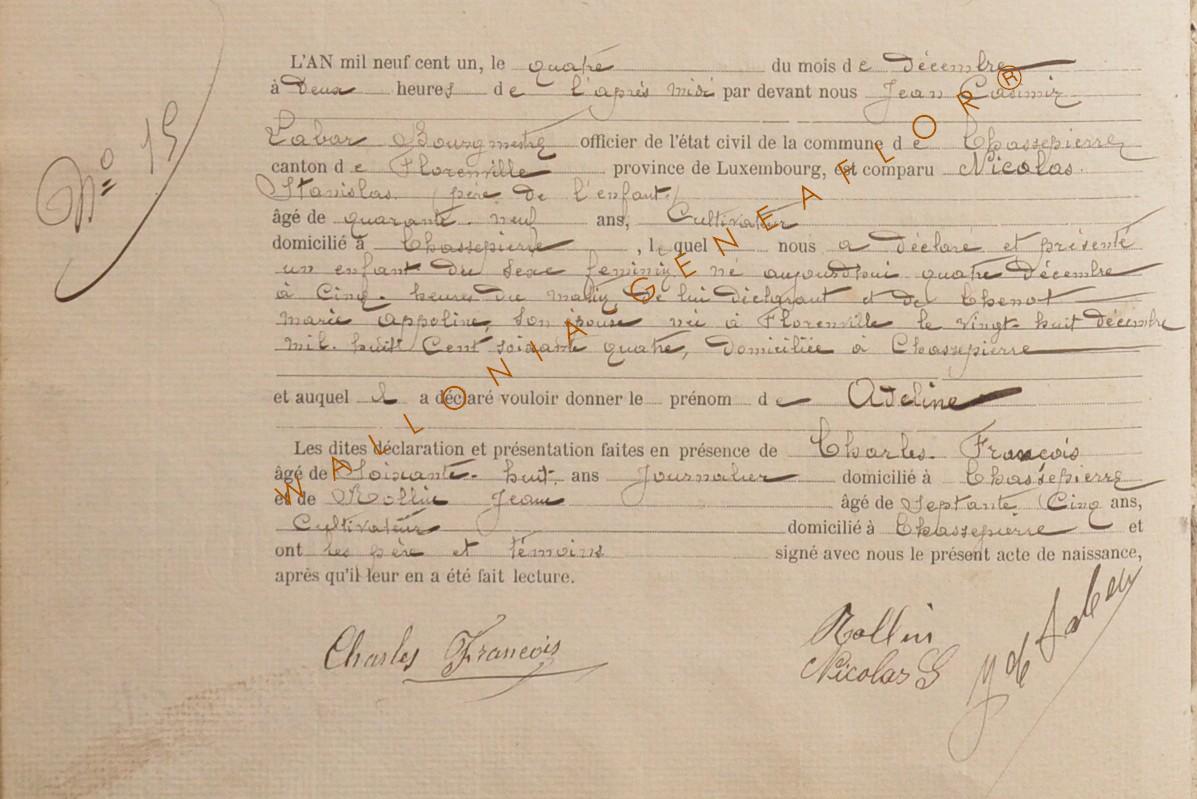 Nº 15
L'AN mil neuf cent un, le quatre du mois de décembre
à Deux heures de l'après midi par devant nous Jean Casimir
Labar Bourgmestre officier de l'état civil de la commune de Chassepierre
canton de Florenville province de Luxembourg, est comparu Nicolas
Stanislas (père de l'enfant)
âgé de quarante-neuf ans, Cultivateur
domicilié à Chassepierre, lequel nous a déclaré et présenté
un enfant du sexe féminin né aujourd'hui quatre Décembre
à Cinq heures du matin, de lui déclarant et de Thenot
Marie Appoline, son épouse née à Florenville le vingt-huit décembre
mil huit Cent soixante quatre, domiciliée à Chassepierre
et auquel il a déclaré vouloir donner le prénom de Adeline
Les dites déclaration et présentation faites en présence de Charles François
âgé de Soixante-huit ans Journalier domicilié à Chassepierre
et de Rollin Jean âgé de Septante Cinq ans,
Cultivateur domicilié à Chassepierre et
ont les père et témoins signé avec nous le présent acte de naissance,
après qu'il leur en a été fait lecture.
Charles François
Rollin
Nicolas S
WALLONIA GENEAFLOR®